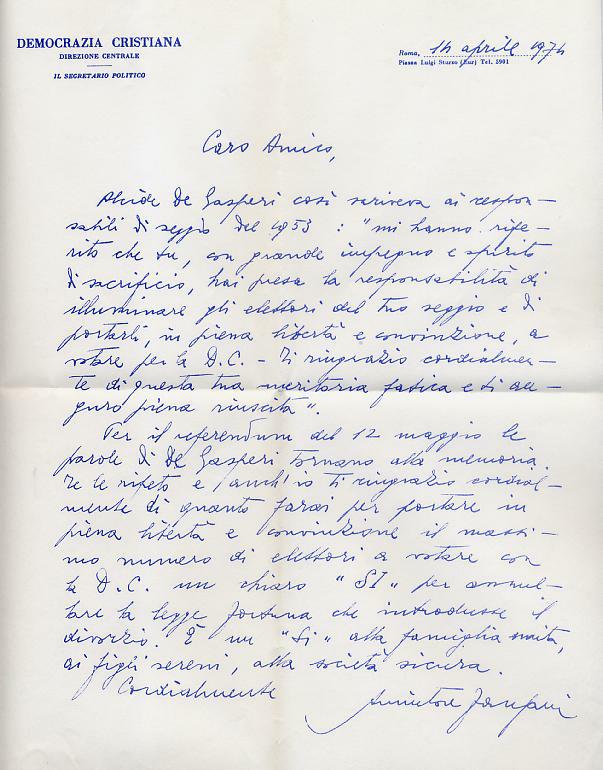 DEMOCRAZIA CRISTIANA
DIREZIONE CENTRALE
IL SEGRETARIO POLITICO
Roma, 14 aprile 1974
Piazza Luigi Sturzo (Eur) Tel. 5901
Caro Amico,
Alcide De Gasperi così scriveva ai respon-
sabili di seggio del 1953 : "mi hanno rife-
rito che tu, con grande impegno e spirito
di sacrificio, hai presa la responsabilità di
illuminare gli elettori del tuo seggio e di
portarli, in piena libertà e convinzione, a
votare per la D.C. - Ti ringrazio cordialmen-
te di questa tua meritoria fatica e ti au-
guro piena riuscita".
Per il referendum del 12 maggio le
parole di De Gasperi tornano alla memoria.
Te le ripeto e anch'io ti ringrazio cordial-
mente di quanto farai per portare in
piena libertà e convinzione il massi-
mo numero di elettori a votare con
la D.C. un chiaro "SI" per annul-
lare la legge Fortuna che introdusse il
divorzio. È un "Sì" alla famiglia unita,
ai figli sereni, alla società sicura.
Cordialmente
Amintore Fanfani